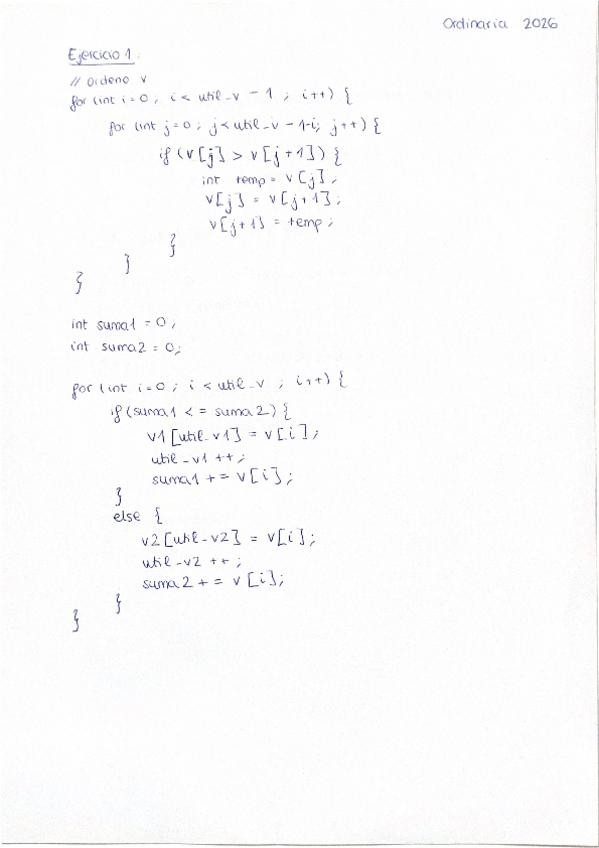 Ordinaria 2026
Ejercicio 1:
// Ordeno v
for (int i=0; i< util_v - 1 ; i++) {
for (int j=0; j<util_v - 1-i; j++) {
if (v[j] > v[j+1]) {
int temp = v[j];
v[j] = v[j+1];
v[j+1] = temp;
}
}
}
int suma1 = 0;
int suma2 = 0;
for (int i=0; i < util_v ; i++) {
if (suma1 <= suma2) {
v1[util_v1] = v[i];
util_v1 ++;
suma1 += v[i];
}
else {
v2[util_v2] = v[i];
util_v2 ++;
suma2 += v[i];
}
}